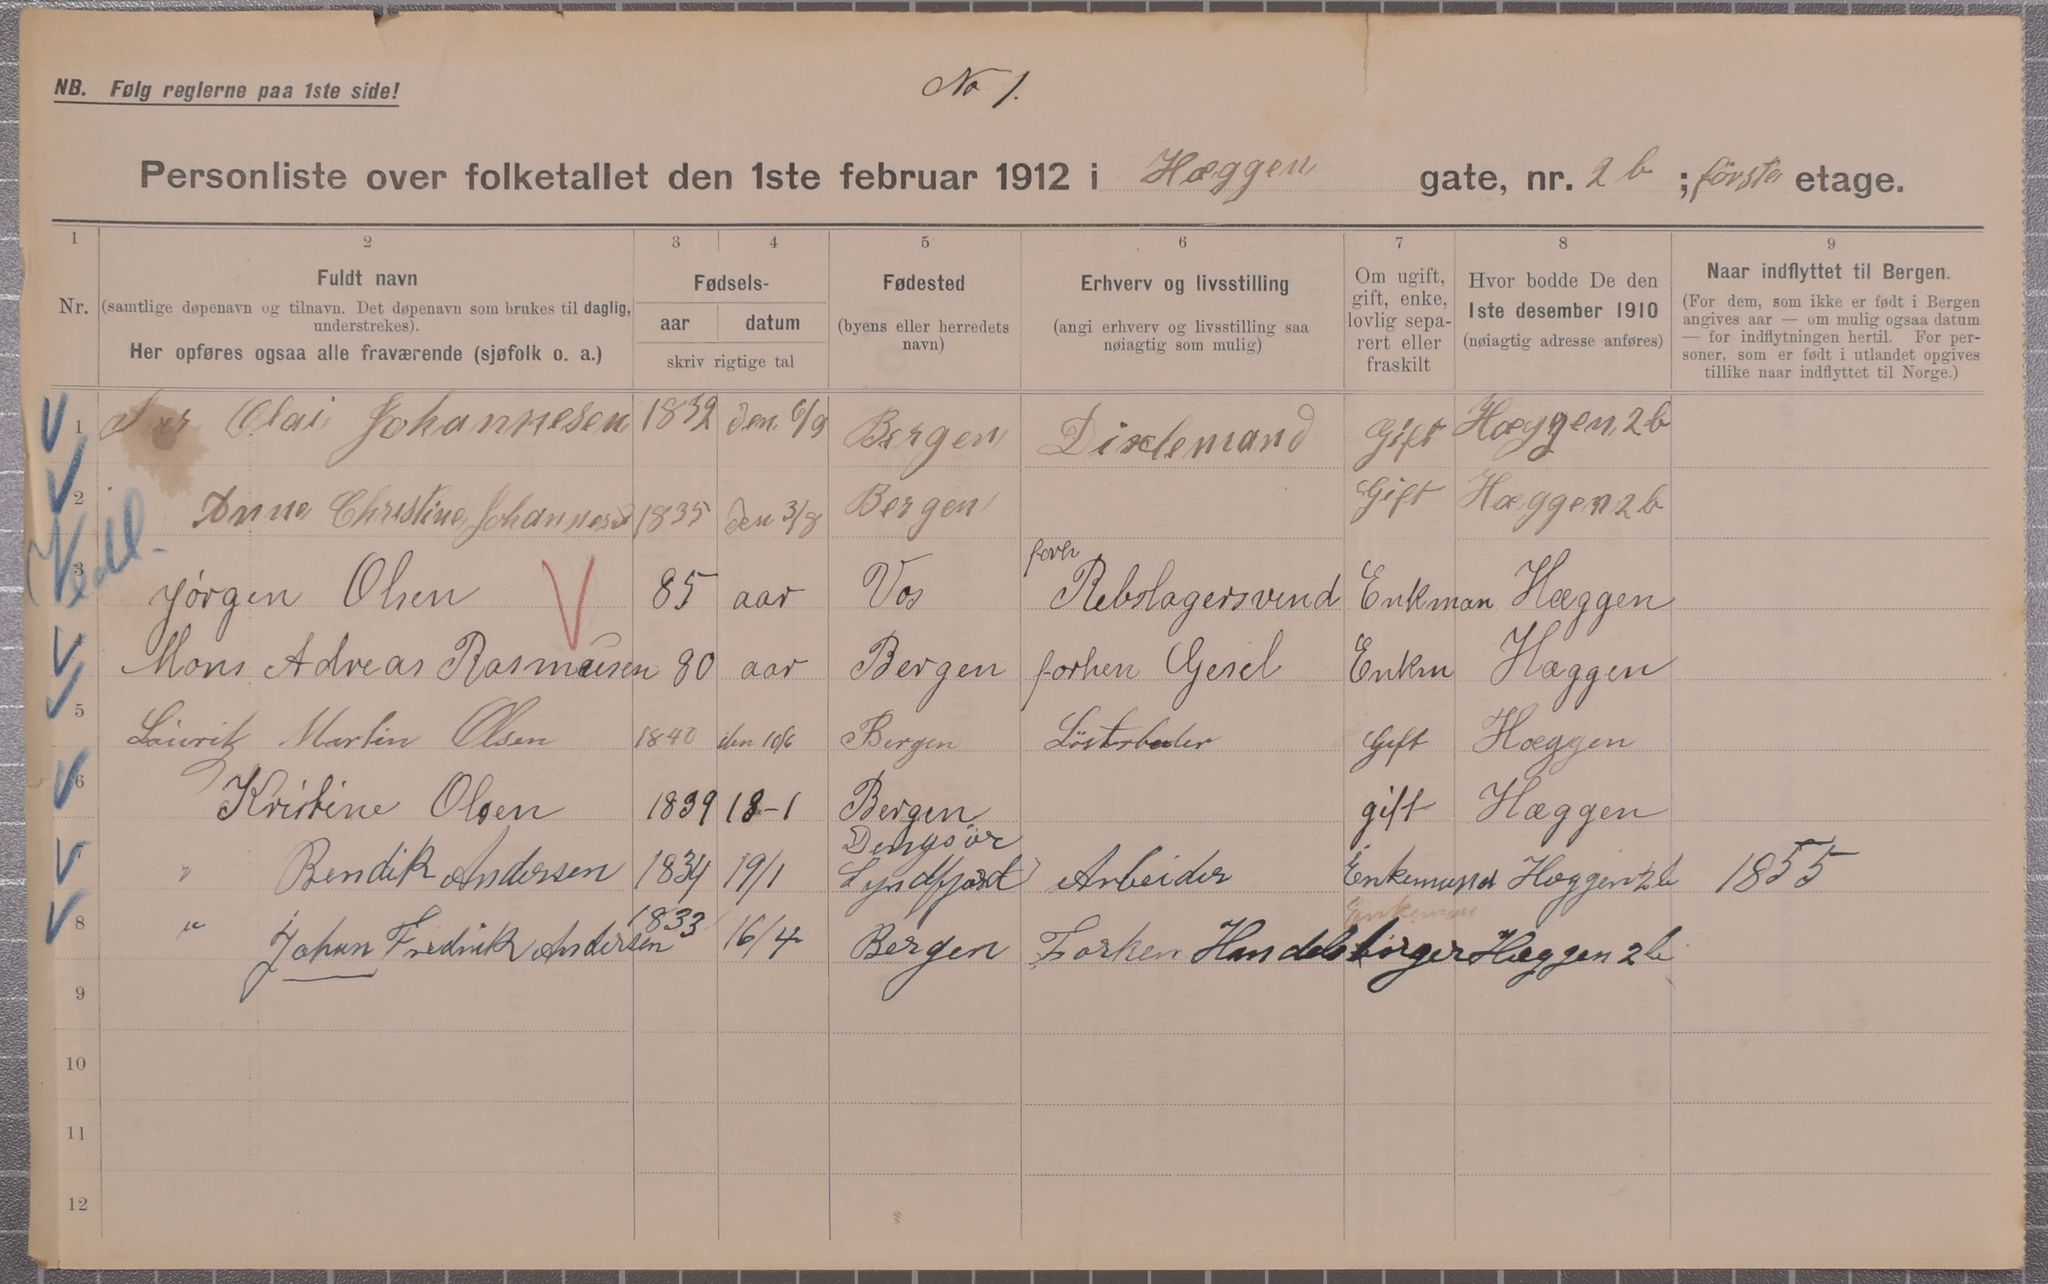 No 1.
NB. Følg reglerne paa 1ste side!
Personliste over folketallet den 1ste februar 1912 i Hæggen gate, nr. 2 b ; første etage.
1 2 3 4 5 6 7 8 9
Nr.
Fuldt navn
(samtlige døpenavn og tilnavn. Det døpenavn som brukes til daglig, understrekes).
Her opføres ogsaa alle fraværende (sjøfolk o. a.)
Fødsels-
aar datum
skriv rigtige tal
Fødested
(byens eller herredets navn)
Erhverv og livsstilling
(angi erhverv og livsstilling saa nøiagtig som mulig)
Om ugift, gift, enke, lovlig separert eller fraskilt
Hvor bodde De den
1ste desember 1910
(nøiagtig adresse anføres)
Naar indflyttet til Bergen.
(For dem, som ikke er født i Bergen angives aar — om mulig ogsaa datum — for indflytningen hertil. For personer, som er født i utlandet opgives tillike naar indflyttet til Norge.)
1 Olai Johannesen 1839 den 6/9 Bergen Gift Hæggen 2 b
2 Anne Christine Johannesen 1835 den 3/8 Bergen Gift Hæggen 2 b
3 Jørgen Olsen 85 aar Vos forh Rebslagersvend Enkman Hæggen
4 Mons Adreas Rasmusen 80 aar Bergen forhen Gesel Enkm Hæggen
5 Lauritz Martin Olsen 1840 den 10/6 Bergen Løstarbeder Gift Hæggen
6 Kristine Olsen 1839 18-1 Bergen gift Hæggen
7 " Bendik Andersen 1834 19/1 Arbeider Enkemand Hæggen 2 b 1855
8 " Johan Fredrik Andersen 1833 16/4 Bergen Forhen Handelsborger Enkeman Hæggen 2 b
9
10
11
12